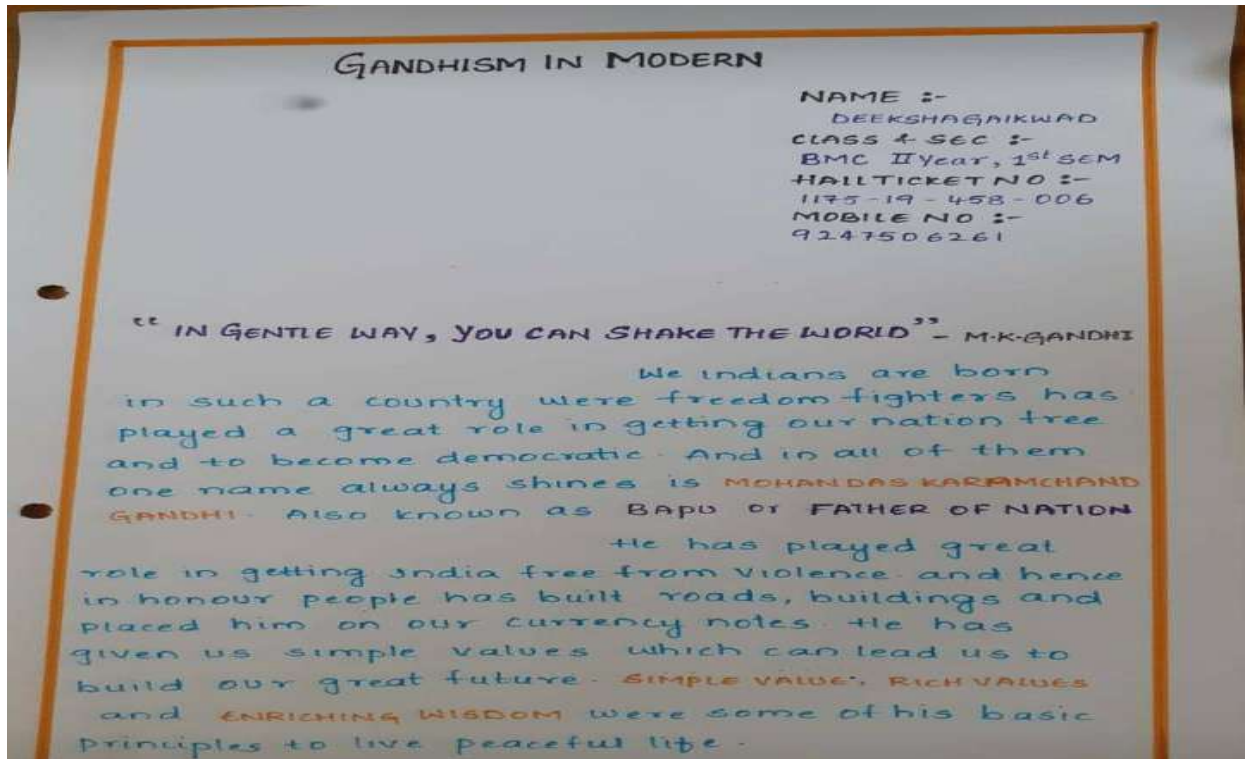 GANDHISM IN MODERN
NAME :-
DEEKSHAGAIKWAD
CLASS & SEC :-
BMC II Year, 1st SEM
HALL TICKET NO :-
1175-19-458-006
MOBILE NO :-
9247506261
“IN GENTLE WAY, YOU CAN SHAKE THE WORLD” - M.K.GANDHI
We indians are born
in such a country were freedom fighters has
played a great role in getting our nation free
and to become democratic. And in all of them
one name always shines is MOHANDAS KARAMCHAND
GANDHI. Also known as BAPU or FATHER OF NATION
He has played great
role in getting India free from violence. and hence
in honour people has built roads, buildings and
placed him on our currency notes. He has
given us simple values which can lead us to
build our great future. SIMPLE VALUE, RICH VALUES
and ENRICHING WISDOM were some of his basic
principles to live peaceful life.